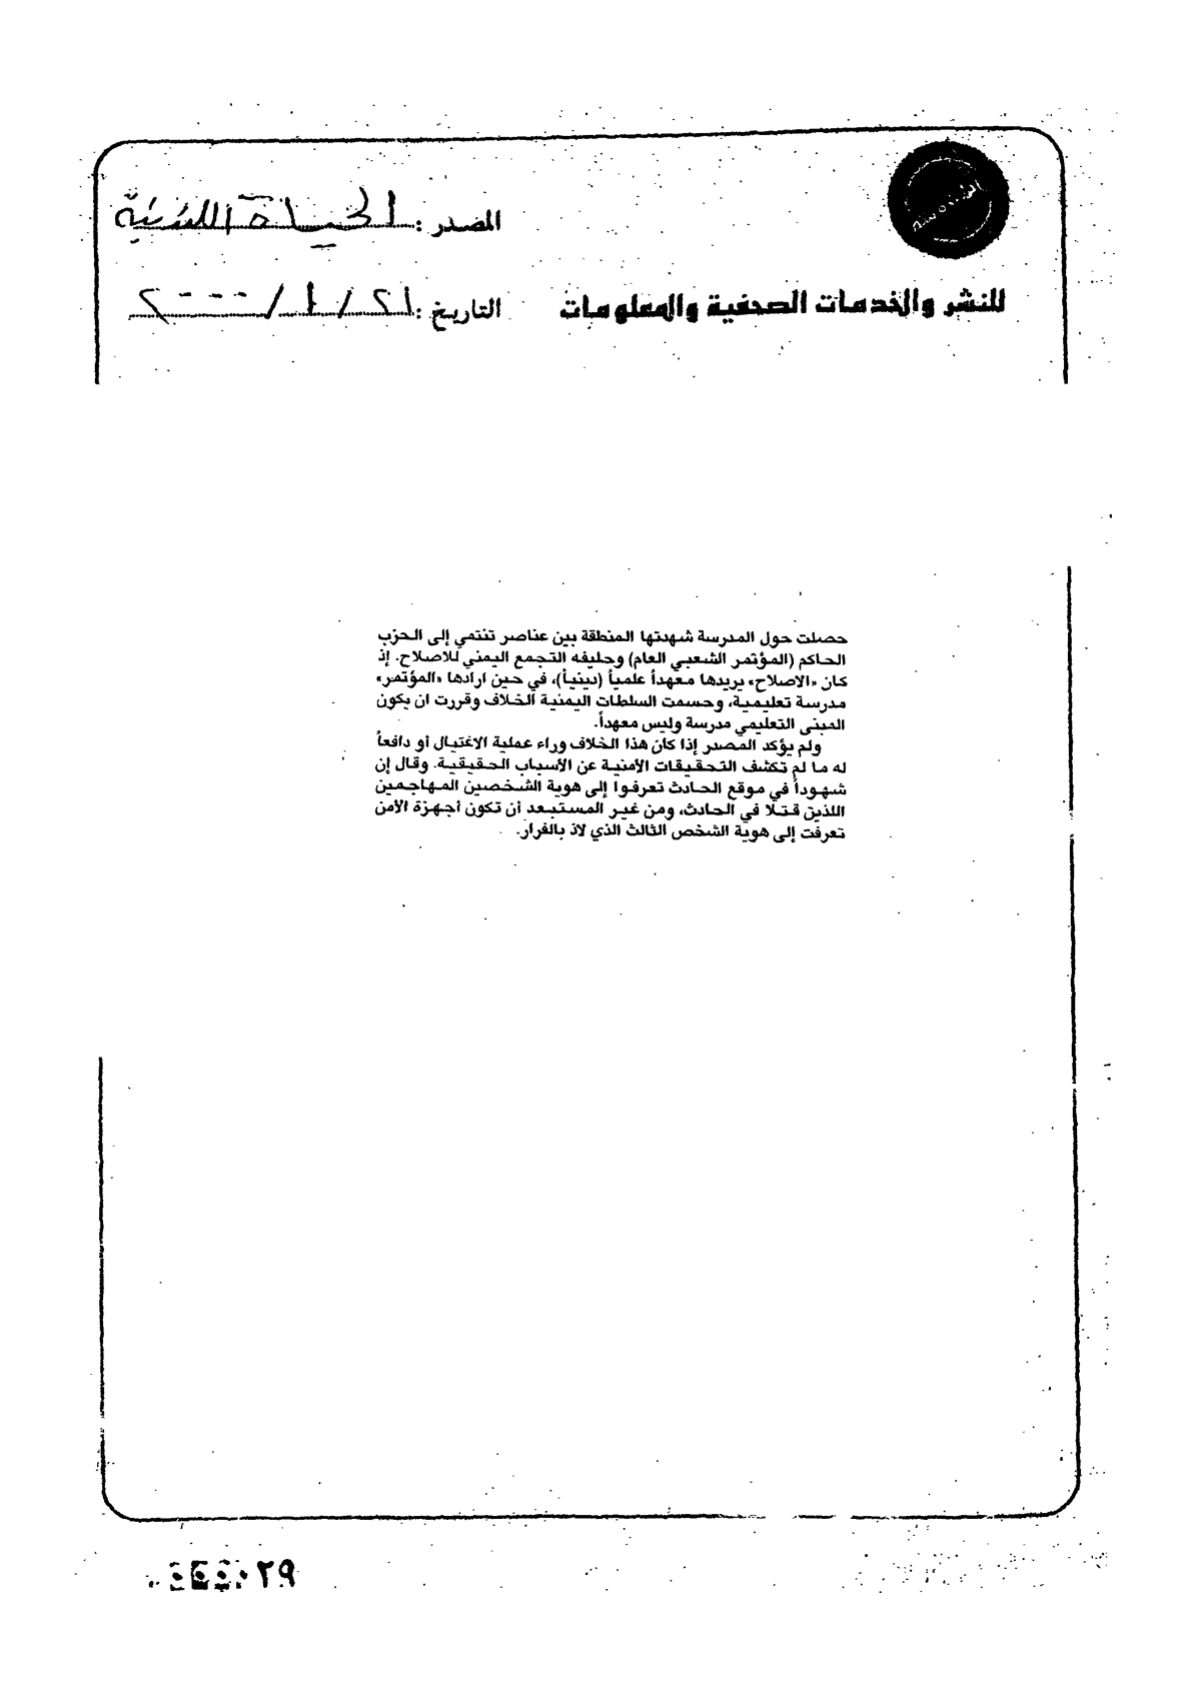 المصدر : الحياة اللندنية
للنشر والخدمات الصحفية والمعلومات
التاريخ : ٢١ / ١ / ٢٠٠٠
حصلت حول المدرسة شهدتها المنطقة بين عناصر تنتمي إلى الحزب
الحاكم (المؤتمر الشعبي العام) وحليفه التجمع اليمني للاصلاح. إذ
كان «الاصلاح» يريدها معهداً علمياً (دينياً)، في حين ارادها «المؤتمر»
مدرسة تعليمية، وحسمت السلطات اليمنية الخلاف وقررت ان يكون
المبنى التعليمي مدرسة وليس معهداً.
ولم يؤكد المصدر إذا كان هذا الخلاف وراء عملية الاغتيال أو دافعاً
له ما لم تكشف التحقيقات الأمنية عن الأسباب الحقيقية. وقال إن
شهوداً في موقع الحادث تعرفوا إلى هوية الشخصين المهاجمين
اللذين قتلا في الحادث، ومن غير المستبعد أن تكون أجهزة الأمن
تعرفت إلى هوية الشخص الثالث الذي لاذ بالفرار.